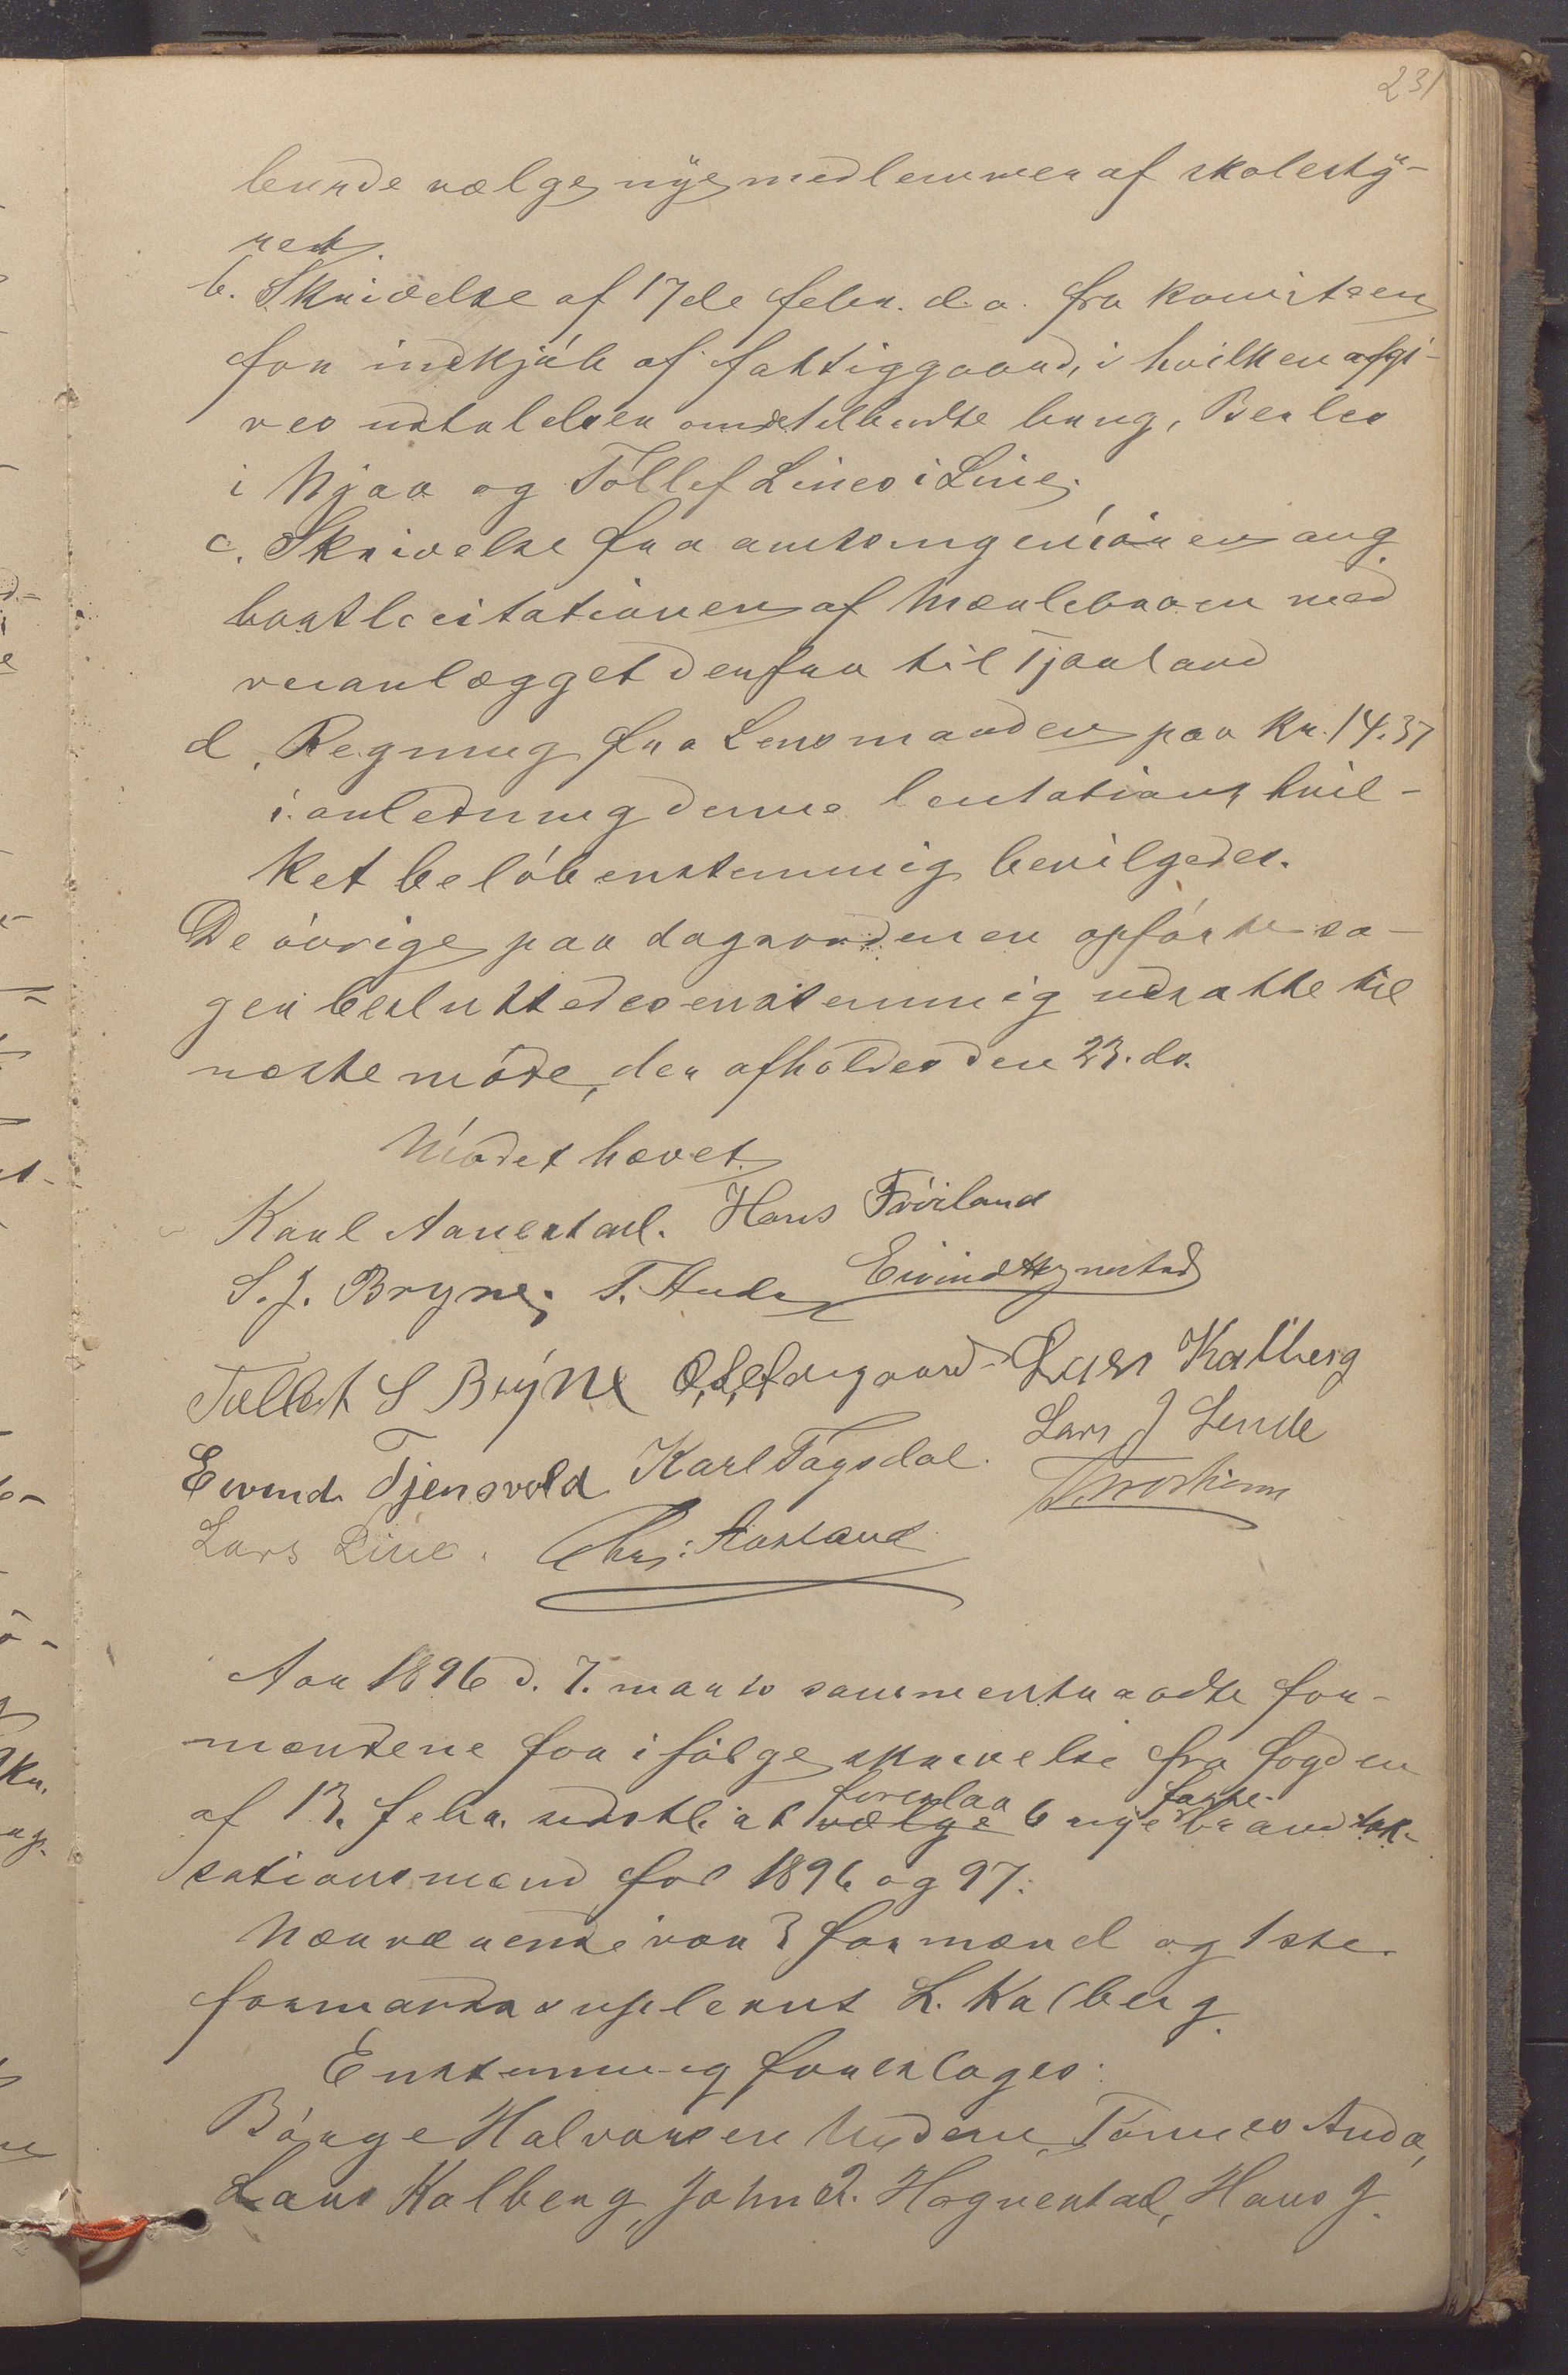 231
kunde vælge nye medlemmer af skolesty-
ret.
b. Skrivelse af 17de febr. d. a. fra komiteen
for indkjöb af fattiggaard, i hvilken afgi-
ves udtalelser om de tilbudte brug,
i Njaa og Tollef Lines i Line.
c. Skrivelse fra amtsingeniören ang.
bortlicitationen af Mælebroen med
veianlægget derfra til Tjaaland
d. Regning fra Lensmanden paa Kr. 14.37
i anledning denne hvil-
ket belöb enstemmig bevilgedes.
De övrige paa dagsordenen opförte sa-
ger besluttedes enstemmig udsatte til
næste möde, der afholdes den 23. ds.
Mödet hævet.
Karl Aanestad. Hans Fröiland
S. J. Bryne. T. Anda Eivind Hognestad
Tollet S Bryne Lars Kalberg
Eivind Tjensvold Karl Tagsdal. Lars J Lende
Lars Line. Chr. Aasland
Aar 1896 d. 7. marts sammentraadte for-
mændene for ifölge skrivelse fra fogden
af 13. febr. udstl. at vælge foreslaa 6 nye faste brandtak-
sationsmænd for 1896 og 97.
Nærværende var 3 formænd og 1ste
formandssuplerant L. Kalberg.
Enstemmig foreslages:
Börge Halvorsen Undem, Tönnes Anda,
Lars Kalberg, John J. Hognestad, Hans J.